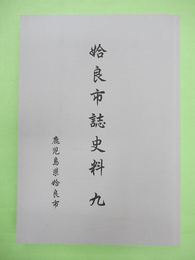 姶良市誌史料 九
鹿児島県姶良市